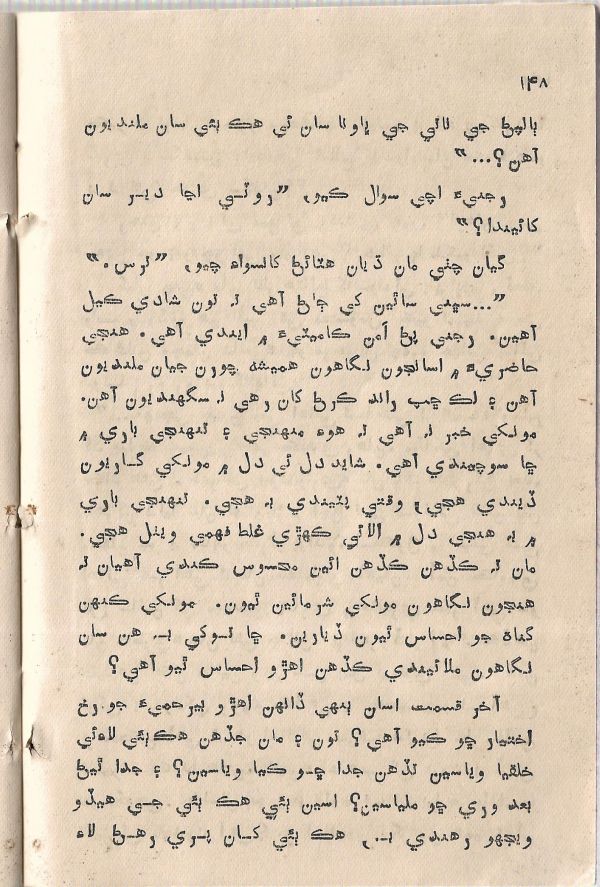 ۱۴۸
ٻالپڻ جي لائي جي ڀاونا سان ئي هڪ ٻئي سان ملنديون
آهن؟..."
رجنيءَ اچي سوال ڪيو، "روٽي اڃا دير سان
کائيندا؟"
گيان چٽي مان ڌيان هٽائڻ کانسواءِ چيو، "ترس."
"...سڀني ساٿين کي ڄاڻ آهي تہ تون شادي ڪيل
آهين. رجني پڻ اُن ڪاميٽيءَ ۾ ايندي آهي. هنجي
حاضريءَ ۾ اسانجون نگاهون هميشہ چورن جيان ملنديون
آهن ۽ لڪ ڇپ راند ڪرڻ کان رهي نہ سگهنديون آهن.
مونکي خبر نہ آهي تہ هوءَ منهنجي ۽ تنهنجي باري ۾
ڇا سوچيندي آهي. شايد دل ئي دل ۾ مونکي گاريون
ڏيندي هجي، وقتي پٽيندي بہ هجي. تنهنجي باري
۾ بہ هنجي دل ۾ الائي ڪهڙي غلط فهمي ويٺل هجي.
مان تہ ڪڏهن ڪڏهن ائين محسوس ڪندي آهيان تہ
هنجون نگاهون مونکي شرمائين ٿيون. مونکي ڪنهن
گناهه جو احساس ٿيون ڏيارين. ڇا توکي بہ هن سان
نگاهون ملائيندي ڪڏهن اهڙو احساس ٿيو آهي؟
آخر قسمت اسان ٻنهي ڏانهن اهڙو بيرحميءَ جو رخ
اختيار ڇو ڪيو آهي؟ تون ۽ مان جڏهن هڪٻئي لاءِ ئي
خلقيا وياسين تڏهن جدا ڇو ڪيا وياسين؟ ۽ جدا ٿيڻ
بعد وري ڇو ملياسين؟ اسين ٻئي هڪ ٻئي جي هيڏو
ويجهو رهندي بہ، هڪ ٻئي کان پري رهڻ لاءِ